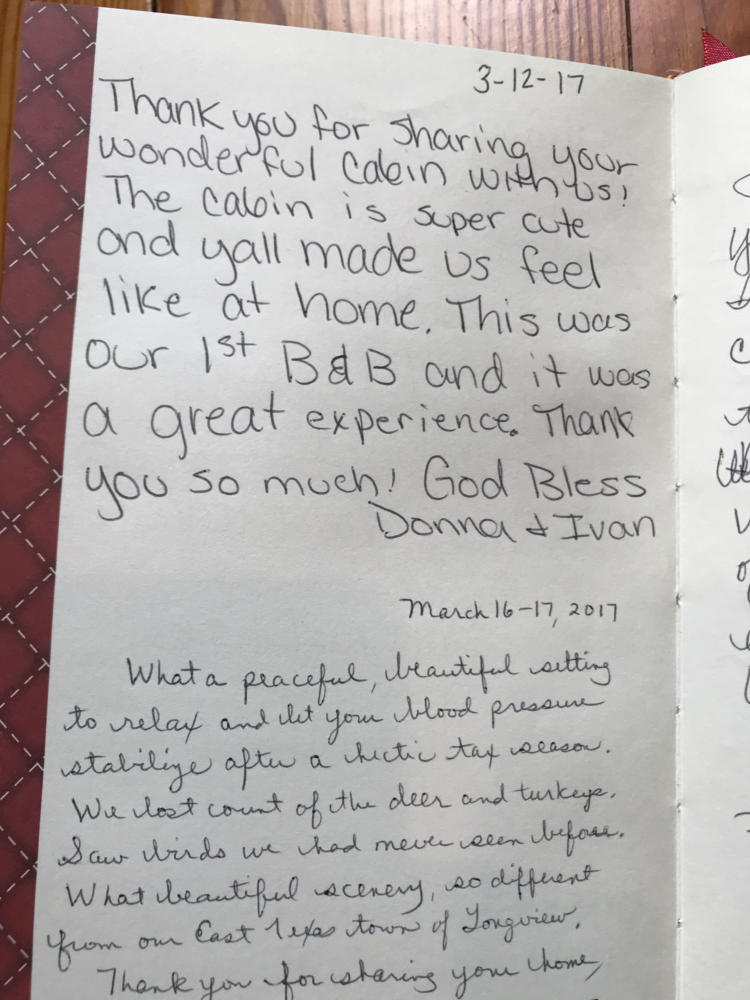 3-12-17
Thank you for sharing your
wonderful Cabin with us!
The cabin is super cute
and yall made us feel
like at home. This was
our 1st B&B and it was
a great experience. Thank
you so much! God Bless
Donna & Ivan
March 16-17, 2017
What a peaceful, beautiful setting
to relax and let your blood pressure
stabilize after a hectic tax season.
We lost count of the deer and turkeys.
Saw birds we had never seen before.
What beautiful scenery, so different
from our East Texas town of Longview.
Thank you for sharing your home,